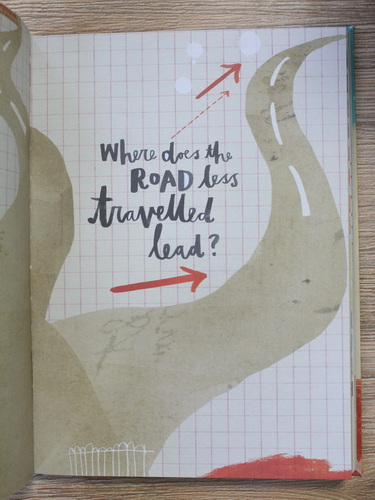 Where does the
ROAD less
travelled
lead?